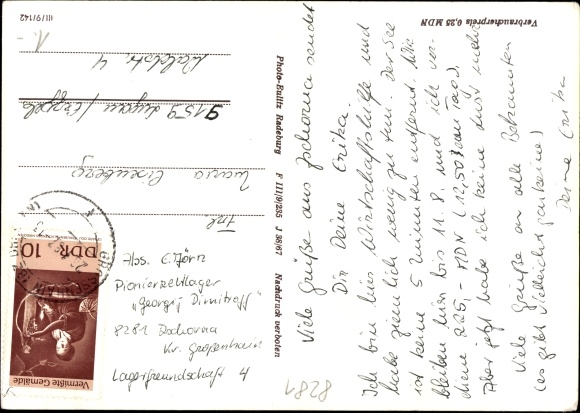 Verbraucherpreis 0,25 MDN
Viele Grüße aus Zschorna sendet
Dir Deine Erika.
Ich bin hier Wirtschaftshilfe und
habe ziemlich wenig zu tun. Der See
ist keine 5 Minuten entfernt. Wir
bleiben hier bis 11.8. und ich ver-
diene 225,- MDN (12,50 am Tag).
Aber jetzt habe ich keine Lust mehr
Viele Grüße an alle Bekannten
(es gibt vielleicht gar keine)
Deine Erika
8281
Photo-Bulitz Radeburg F III/9/235 J 38/67 Nachdruck verboten
III/9/142
Frl.
Eisenberg
9159 Lugau / Erzgeb.
Waldstr. 4
1.-
Abs. E. Görn
Pionierzeltlager
"Georgij Dimitroff"
8281 Zschorna
Kr. Großenhain
Lagerfreundschaft 4
DDR 10
Vermißte Gemälde